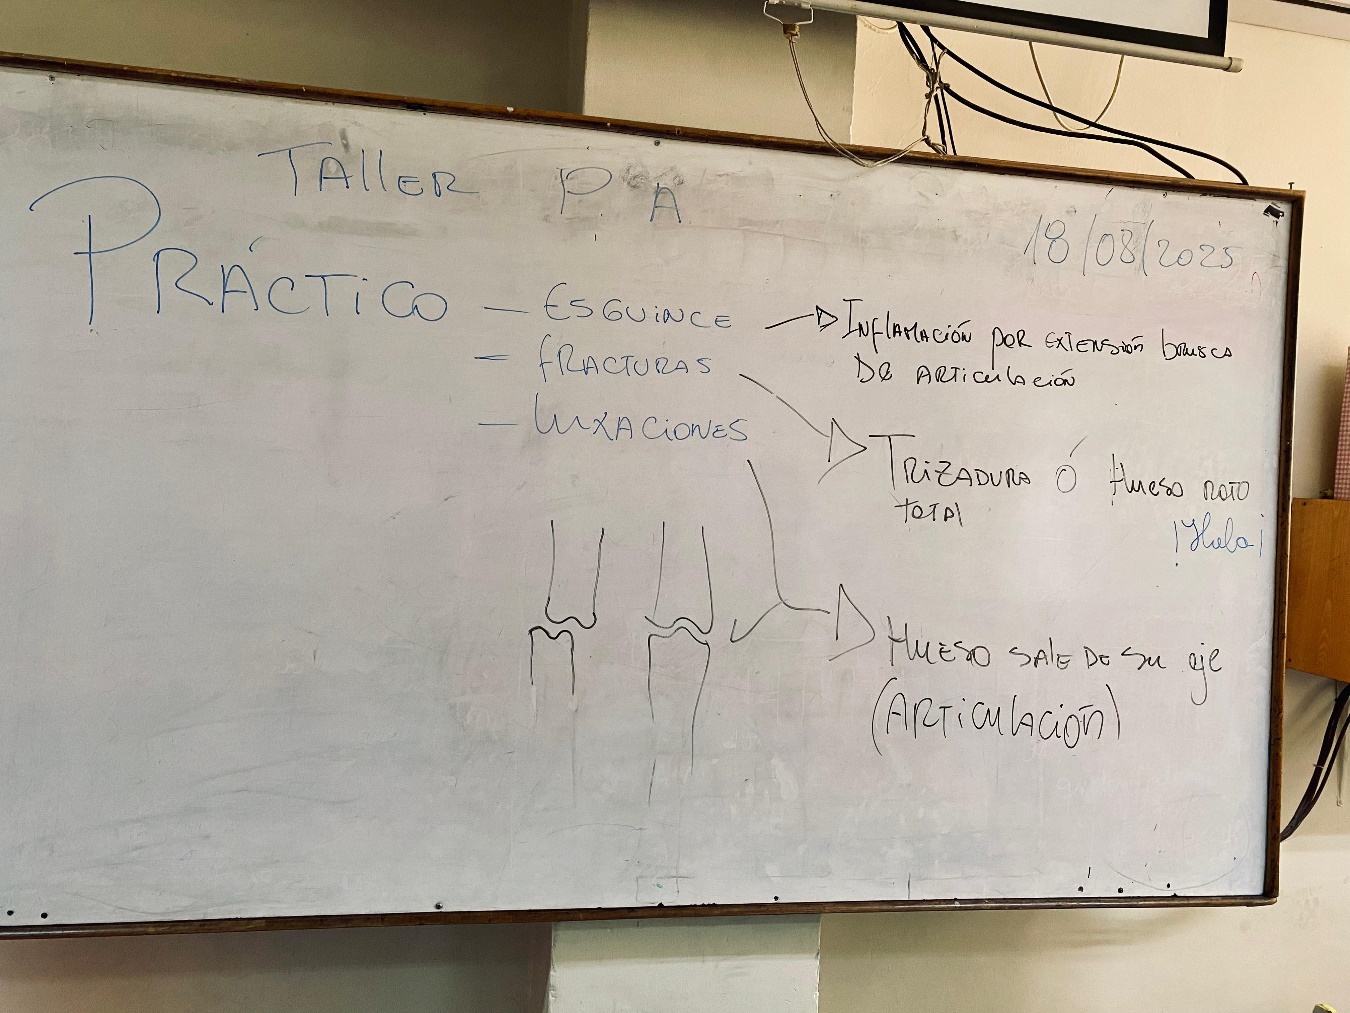 Taller P. A.
18/08/2025
Práctico
- Esguince
- fracturas
- Luxaciones
Inflamación por extensión brusca
De articulación
Trizadura ó Hueso roto
total
¡Hola!
Hueso sale de su eje
(Articulación)